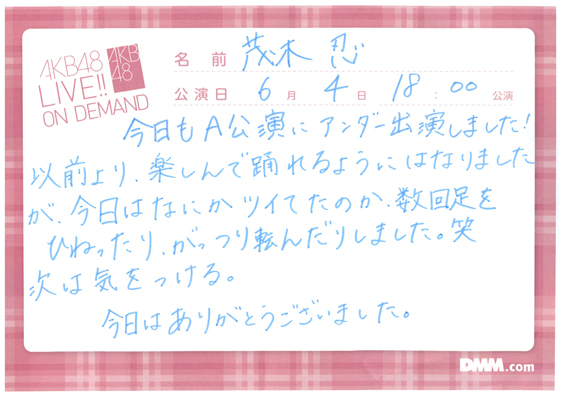 AKB48
LIVE!!
ON DEMAND
AKB
48
名前 茂木 忍
公演日 6月 4日 18:00 公演
今日もA公演にアンダー出演しました!
以前より、楽しんで踊れるようにはなりました
が、今日はなにかツイてたのか、数回足を
ひねったり、がっつり転んだりしました。笑
次は気をつける。
今日はありがとうございました。
DMM.com